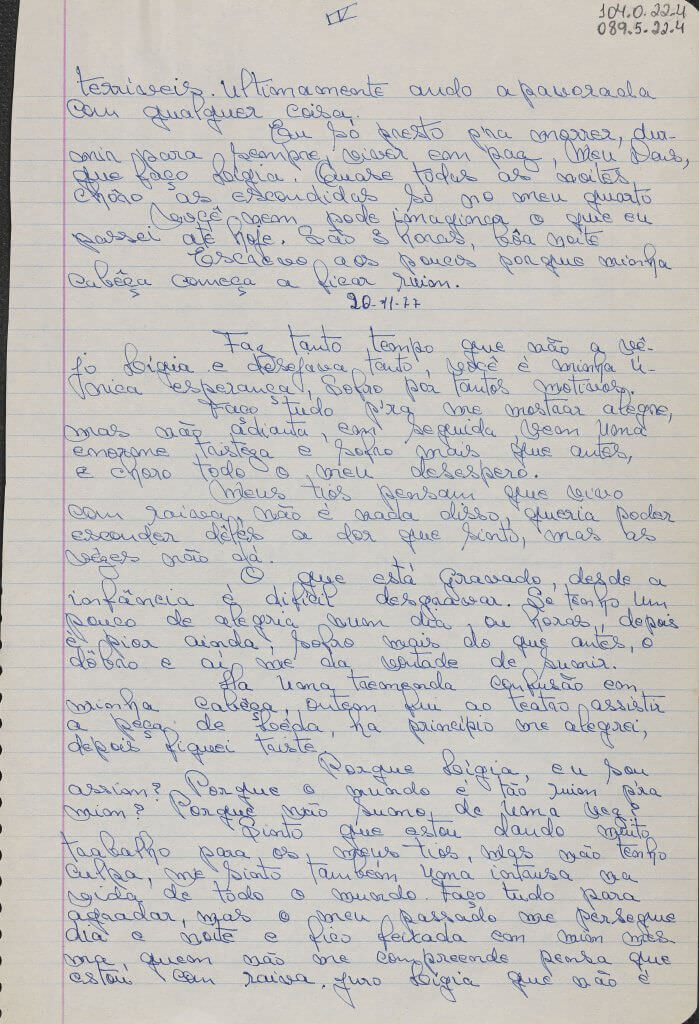 IV
104.0.22.4
089.5.22.4
terriveis. Ultimamente ando apavorada
com qualquer coisa.
Eu só presto p'ra morrer, dur-
mir para sempre, viver em paz, meu Deus,
que faço Lígia. Quase todas as noites
chóro às escondidas só no meu quarto
Você nem pode imaginça o que eu
passei até hoje. São 3 horas, bôa noite
Escrevo aos poucos porque minha
cabêça começa a ficar ruim.
20-11-77
Faz tanto tempo que não a vê-
jo Lígia e desejava tanto, você é minha ú-
nica esperança, sofro por tantos motivos.
Faço tudo p'ra me mostrar alegre,
mas não adianta, em seguida, vem uma
enorme tristeza e sofro mais que antes,
e choro todo o meu desespero.
Meus tios pensam que vivo
com raiva, não é nada disso, queria poder
esconder dêles a dor que sinto, mas as
vêzes não dá.
O que está gravado, desde a
infância é difícil desgravar. Se tenho um
pouco de alegria num dia, ou horas, depois
é pior ainda, sofro mais do que antes, o
dôbro e aí me da vontade de sumir.
Ha uma tremenda confusão em
minha cabêça, ontem fui ao teatro assistir
a peça de Lêda, ha principio me alegrei,
depois fiquei triste.
Porque Lígia, eu sou
assim? Porque o mundo é tão ruim p'ra
mim? Porque não sumo de uma vez?
Sinto que estou dando muito
trabalho para os meus tios, mas não tenho
culpa, me sinto também uma intrusa na
vida de todo o mundo. Faço tudo para
agradar, mas o meu passado me persegue
dia e noite e fico feixada em mim mes-
ma, quem não me compreende pensa que
estou com raiva. Juro Lígia que não é